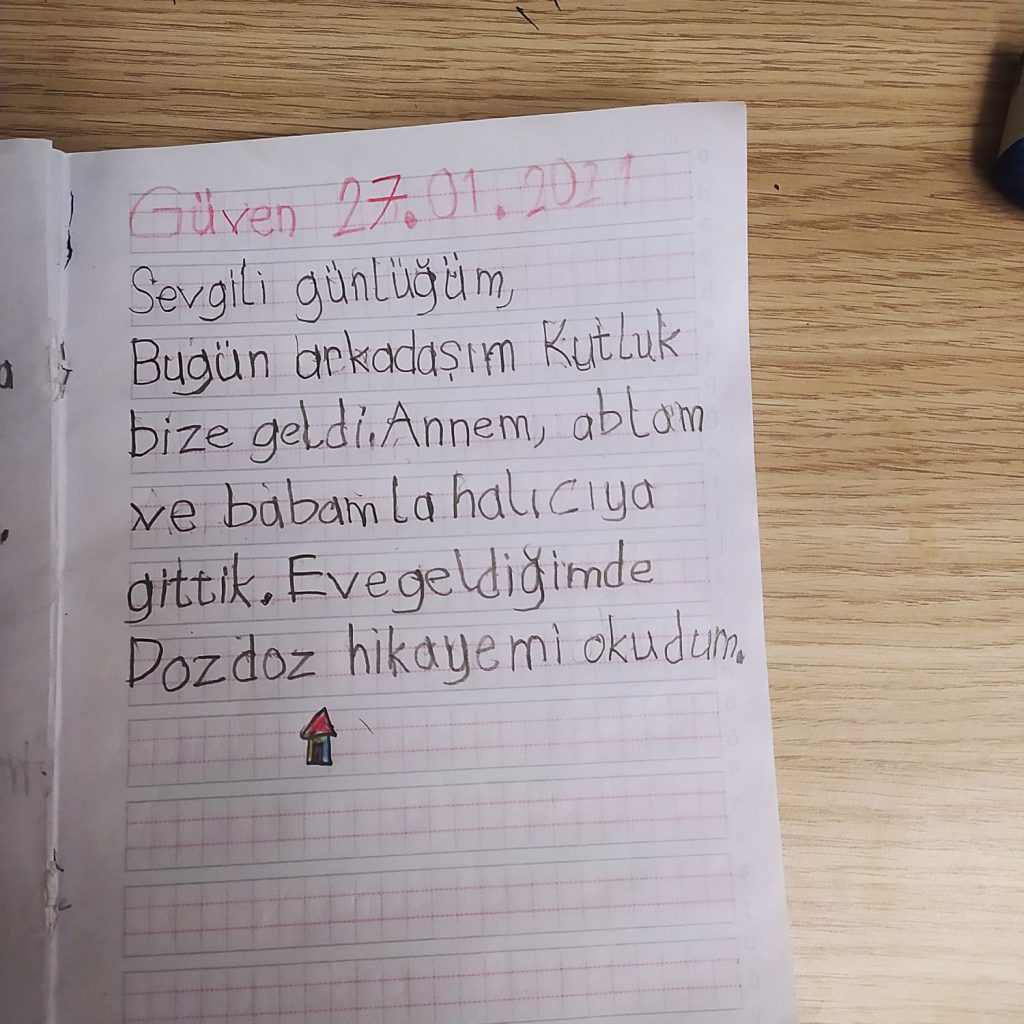 Güven 27.01.2021
Sevgili günlüğüm,
Bugün arkadaşım Kutluk
bize geldi. Annem, ablam
ve babamla halıcıya
gittik. Eve geldiğimde
Dozdoz hikayemi okudum.